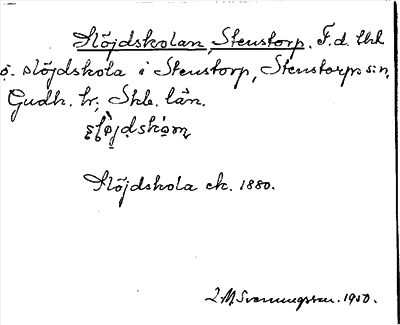 Slöjdskolan, Stenstorp. F.d. lkl
ö. slöjdskola i Stenstorp, Stenstorps sn,
Gudh. hr; Skb. län.
Slöjdskola ck. 1880.
Svenungsson. 1950.